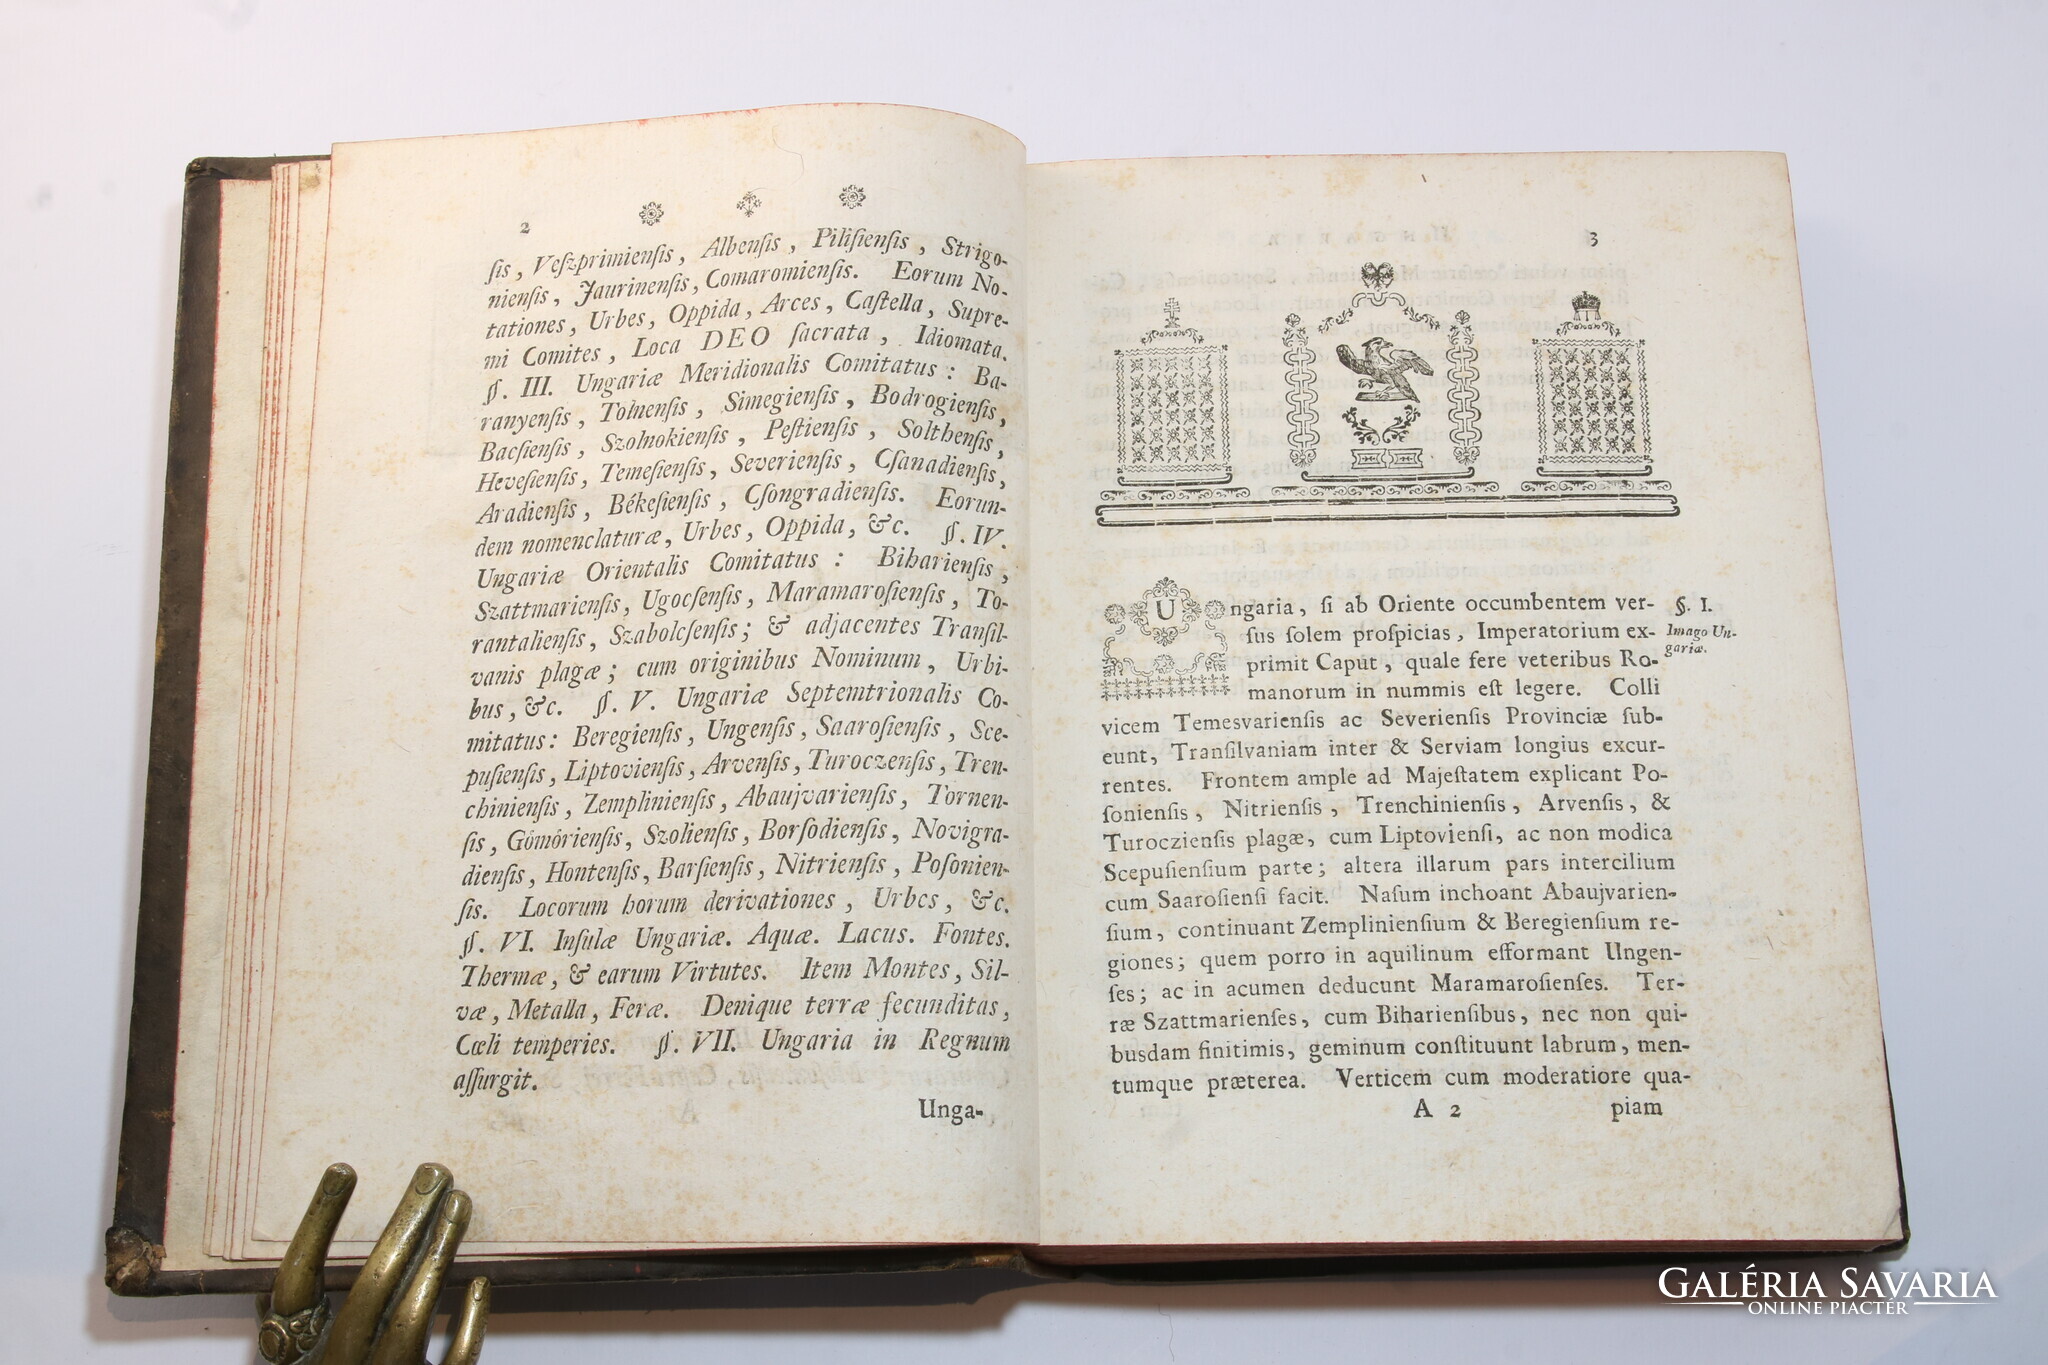 2
sis, Veszprimiensis, Albensis, Pilisiensis, Strigo-
niensis, Jaurinensis, Comaromiensis. Eorum No-
tationes, Urbes, Oppida, Arces, Castella, Supre-
mi Comites, Loca DEO sacrata, Idiomata.
§. III. Ungariæ Meridionalis Comitatus: Ba-
ranyensis, Tolnensis, Simegiensis, Bodrogiensis,
Bacsiensis, Szolnokiensis, Pestiensis, Solthensis,
Hevesiensis, Temesiensis, Severiensis, Csanadiensis,
Aradiensis, Békesiensis, Csongradiensis. Eorun-
dem nomenclaturæ, Urbes, Oppida, &c. §. IV.
Ungariæ Orientalis Comitatus: Bihariensis,
Szattmariensis, Ugocsensis, Maramarosiensis, To-
rantaliensis, Szabolcsensis; & adjacentes Transil-
vanis plagæ; cum originibus Nominum, Urbi-
bus, &c. §. V. Ungariæ Septemtrionalis Co-
mitatus: Beregiensis, Ungensis, Saarosiensis, Sce-
pusiensis, Liptoviensis, Arvensis, Turoczensis, Tren-
chiniensis, Zempliniensis, Abaujvariensis, Tornen-
sis, Gömöriensis, Szoliensis, Borsodiensis, Novigra-
diensis, Hontensis, Barsiensis, Nitriensis, Posonien-
sis. Locorum horum derivationes, Urbes, &c.
§. VI. Insulæ Ungariæ. Aquæ. Lacus. Fontes.
Thermæ, & earum Virtutes. Item Montes, Sil-
væ, Metalla, Feræ. Denique terræ fecunditas,
Cœli temperies. §. VII. Ungaria in Regnum
assurgit.
Unga-
3
Ungaria, si ab Oriente occumbentem ver-
sus solem prospicias, Imperatorium ex-
primit Caput, quale fere veteribus Ro-
manorum in nummis est legere. Colli
vicem Temesvariensis ac Severiensis Provinciæ sub-
eunt, Transilvaniam inter & Serviam longius excur-
rentes. Frontem ample ad Majestatem explicant Po-
soniensis, Nitriensis, Trenchiniensis, Arvensis, &
Turocziensis plagæ, cum Liptoviensi, ac non modica
Scepusiensium parte; altera illarum pars intercilium
cum Saarosiensi facit. Nasum inchoant Abaujvarien-
sium, continuant Zempliniensium & Beregiensium re-
giones; quem porro in aquilinum efformant Ungen-
ses; ac in acumen deducunt Maramarosienses. Ter-
ræ Szattmarienses, cum Bihariensibus, nec non qui-
busdam finitimis, geminum constituunt labrum, men-
tumque præterea. Verticem cum moderatiore qua-
A 2 piam
§. I.
Imago Un-
gariæ.
GALÉRIA SAVARIA
ONLINE PIACTÉR